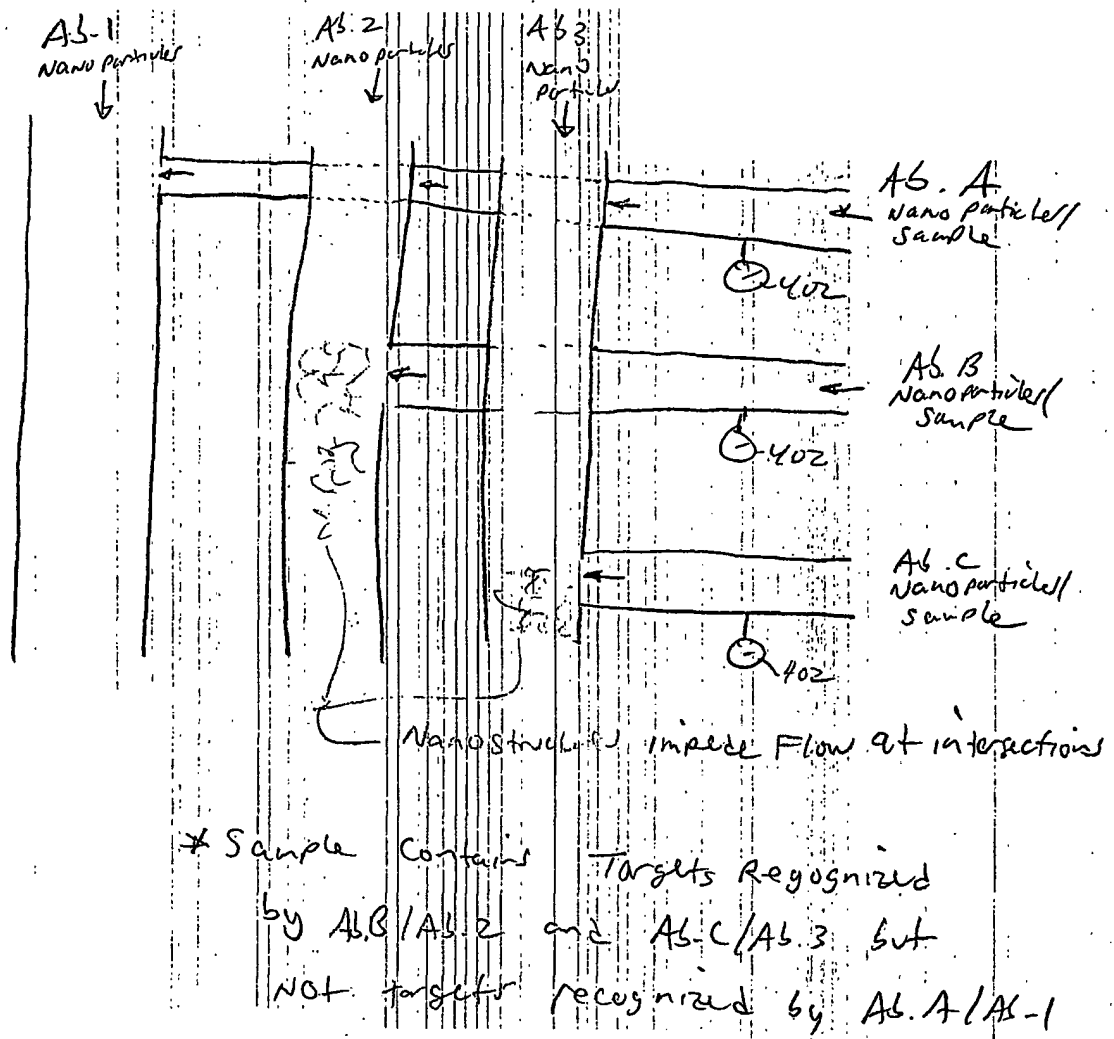 Ab-1
Nanoparticles
Ab.2
Nanoparticles
Ab3
Nano
particles
Ab. A
Nanoparticles/
Sample
402
Ab. B
Nanoparticles/
Sample
402
Ab. C
Nanoparticles/
Sample
402
Nanostructures impede Flow at intersections
* Sample Contains Targets Regognized
by Ab.B/Ab.2 and Ab-C/Ab.3 but
NOT targets recognized by Ab.A/Ab-1